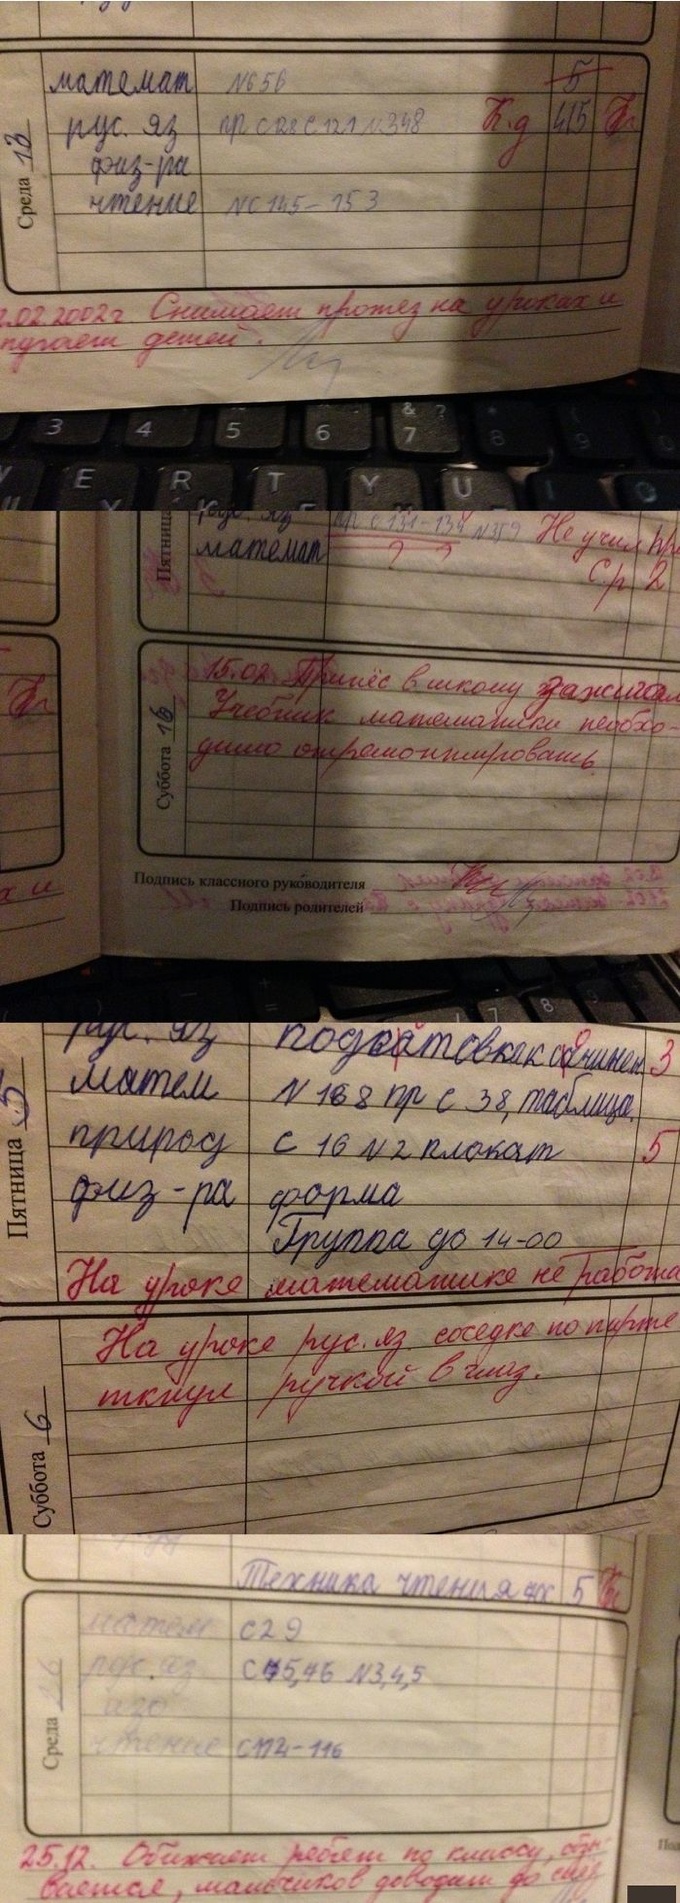 Среда 13
математ N656 5
рус. яз пр с 128 с 121 N348 К.д 4/5
физ-ра
чтение N с 145-153
.02.2002г Снимает протез на уроках и
пугает детей.
3 4 5 6 & 7 ? * 8 ( 9
E R T Y U I O
Пятница рус. яз пр с 131-134 N359 Не учил пр
математ ? ? С.р 2
Суббота 16
15.02. Принёс в школу зажигал
Учебник математики необхо-
димо отремонтировать.
Подпись классного руководителя
х и
Подпись родителей
7 8 9
Пятница 5
рус. яз подгатовкак сочинен 3
матем N 168 пр с 38, таблица.
природ с 16 N2 плокат 5
физ-ра форма
Группа до 14-00
На уроке математике не работа
Суббота 6
На уроке рус. яз. соседке по парте
ткнул ручкой в глаз.
Техника чтения 5
Среда
матем с29
рус. яз с 75,76 N3,4,5
изо
чтение с114-116
25.12. Обижает ребят по классу, обзы-
вается, мальчиков доводит до слёз